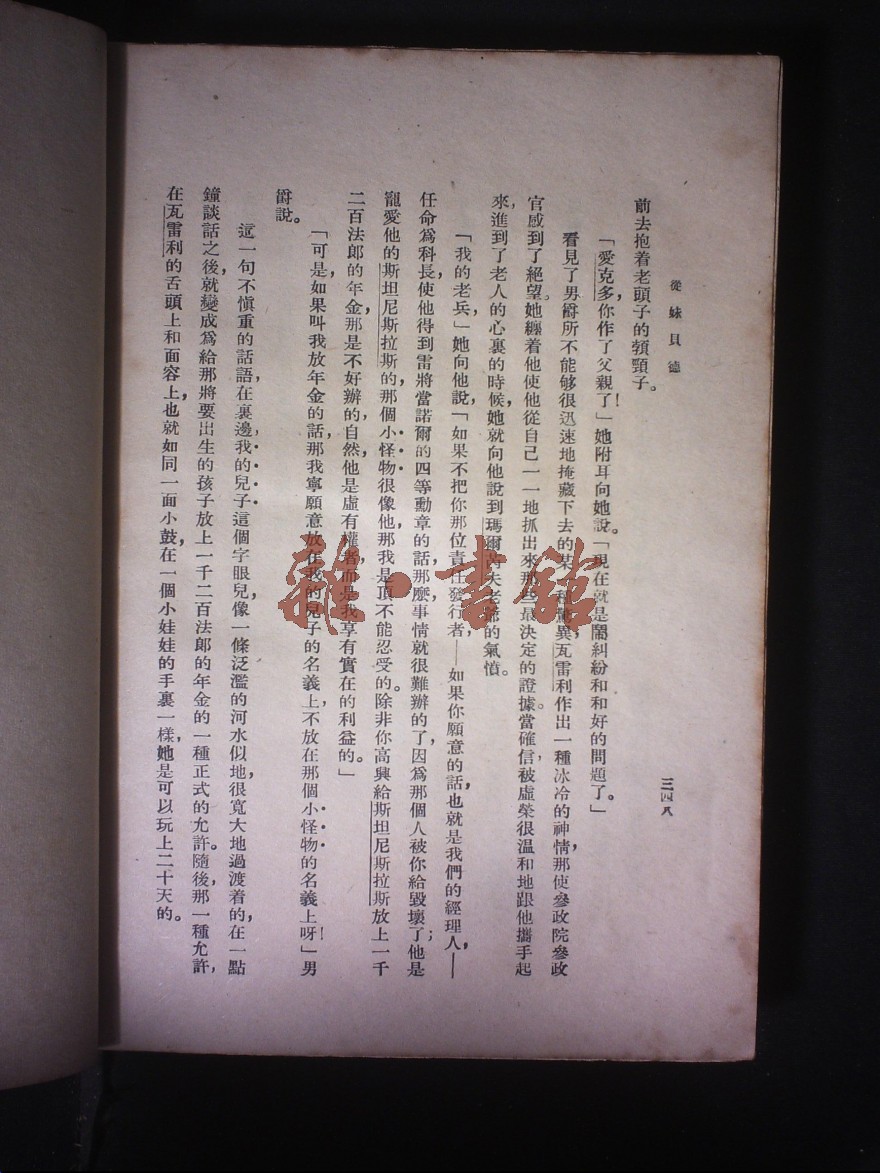 從妹貝德
三四八
前去抱着老頭子的頸子。
「愛克多,你作了父親了!」她附耳向她說。「現在就是鬧糾紛和和好的問題了。」
看見了男爵所不能够很迅速地掩藏下去的某一種驚異,瓦雷利作出一種冰冷的神情,那使參政院參政
官感到了絕望。她纏着他使他從自己一一地抓出來那些最決定的證據。當確信,被虛榮很温和地跟他攜手起
來,進到了老人的心裏的時候,她就向他說到瑪爾內夫老爺的氣憤。
「我的老兵,」她向他說,「如果不把你那位責任發行者,——如果你願意的話,也就是我們的經理人,——
任命爲科長,使他得到雷將當諾爾的四等勳章的話,那麽事情就很難辦的了,因爲那個人被你給毀壞了;他是
寵愛他的斯坦尼斯拉斯的,那個小怪物很像他,那我是頂不能忍受的。除非你高興給斯坦尼斯拉斯放上一千
二百法郎的年金,那是不好辦的,自然他是虛有權者,而是我享有實在的利益的。」
「可是,如果叫我放年金的話,那我寧願意放在我的兒子的名義上,不放在那個小怪物的名義上呀!」男
爵說。
這一句不愼重的話語,在裏邊,我的兒子這個字眼兒,像一條泛濫的河水似地很寬大地過渡着的,在一點
鐘談話之後,就變成爲給那將要出生的孩子放上一千二百法郎的年金的一種正式的允許。隨後,那一種允許,
在瓦雷利的舌頭上和面容上,也就如同一面小鼓,在一個小娃娃的手裏一樣,她是可以玩上二十天的。
雜·書館